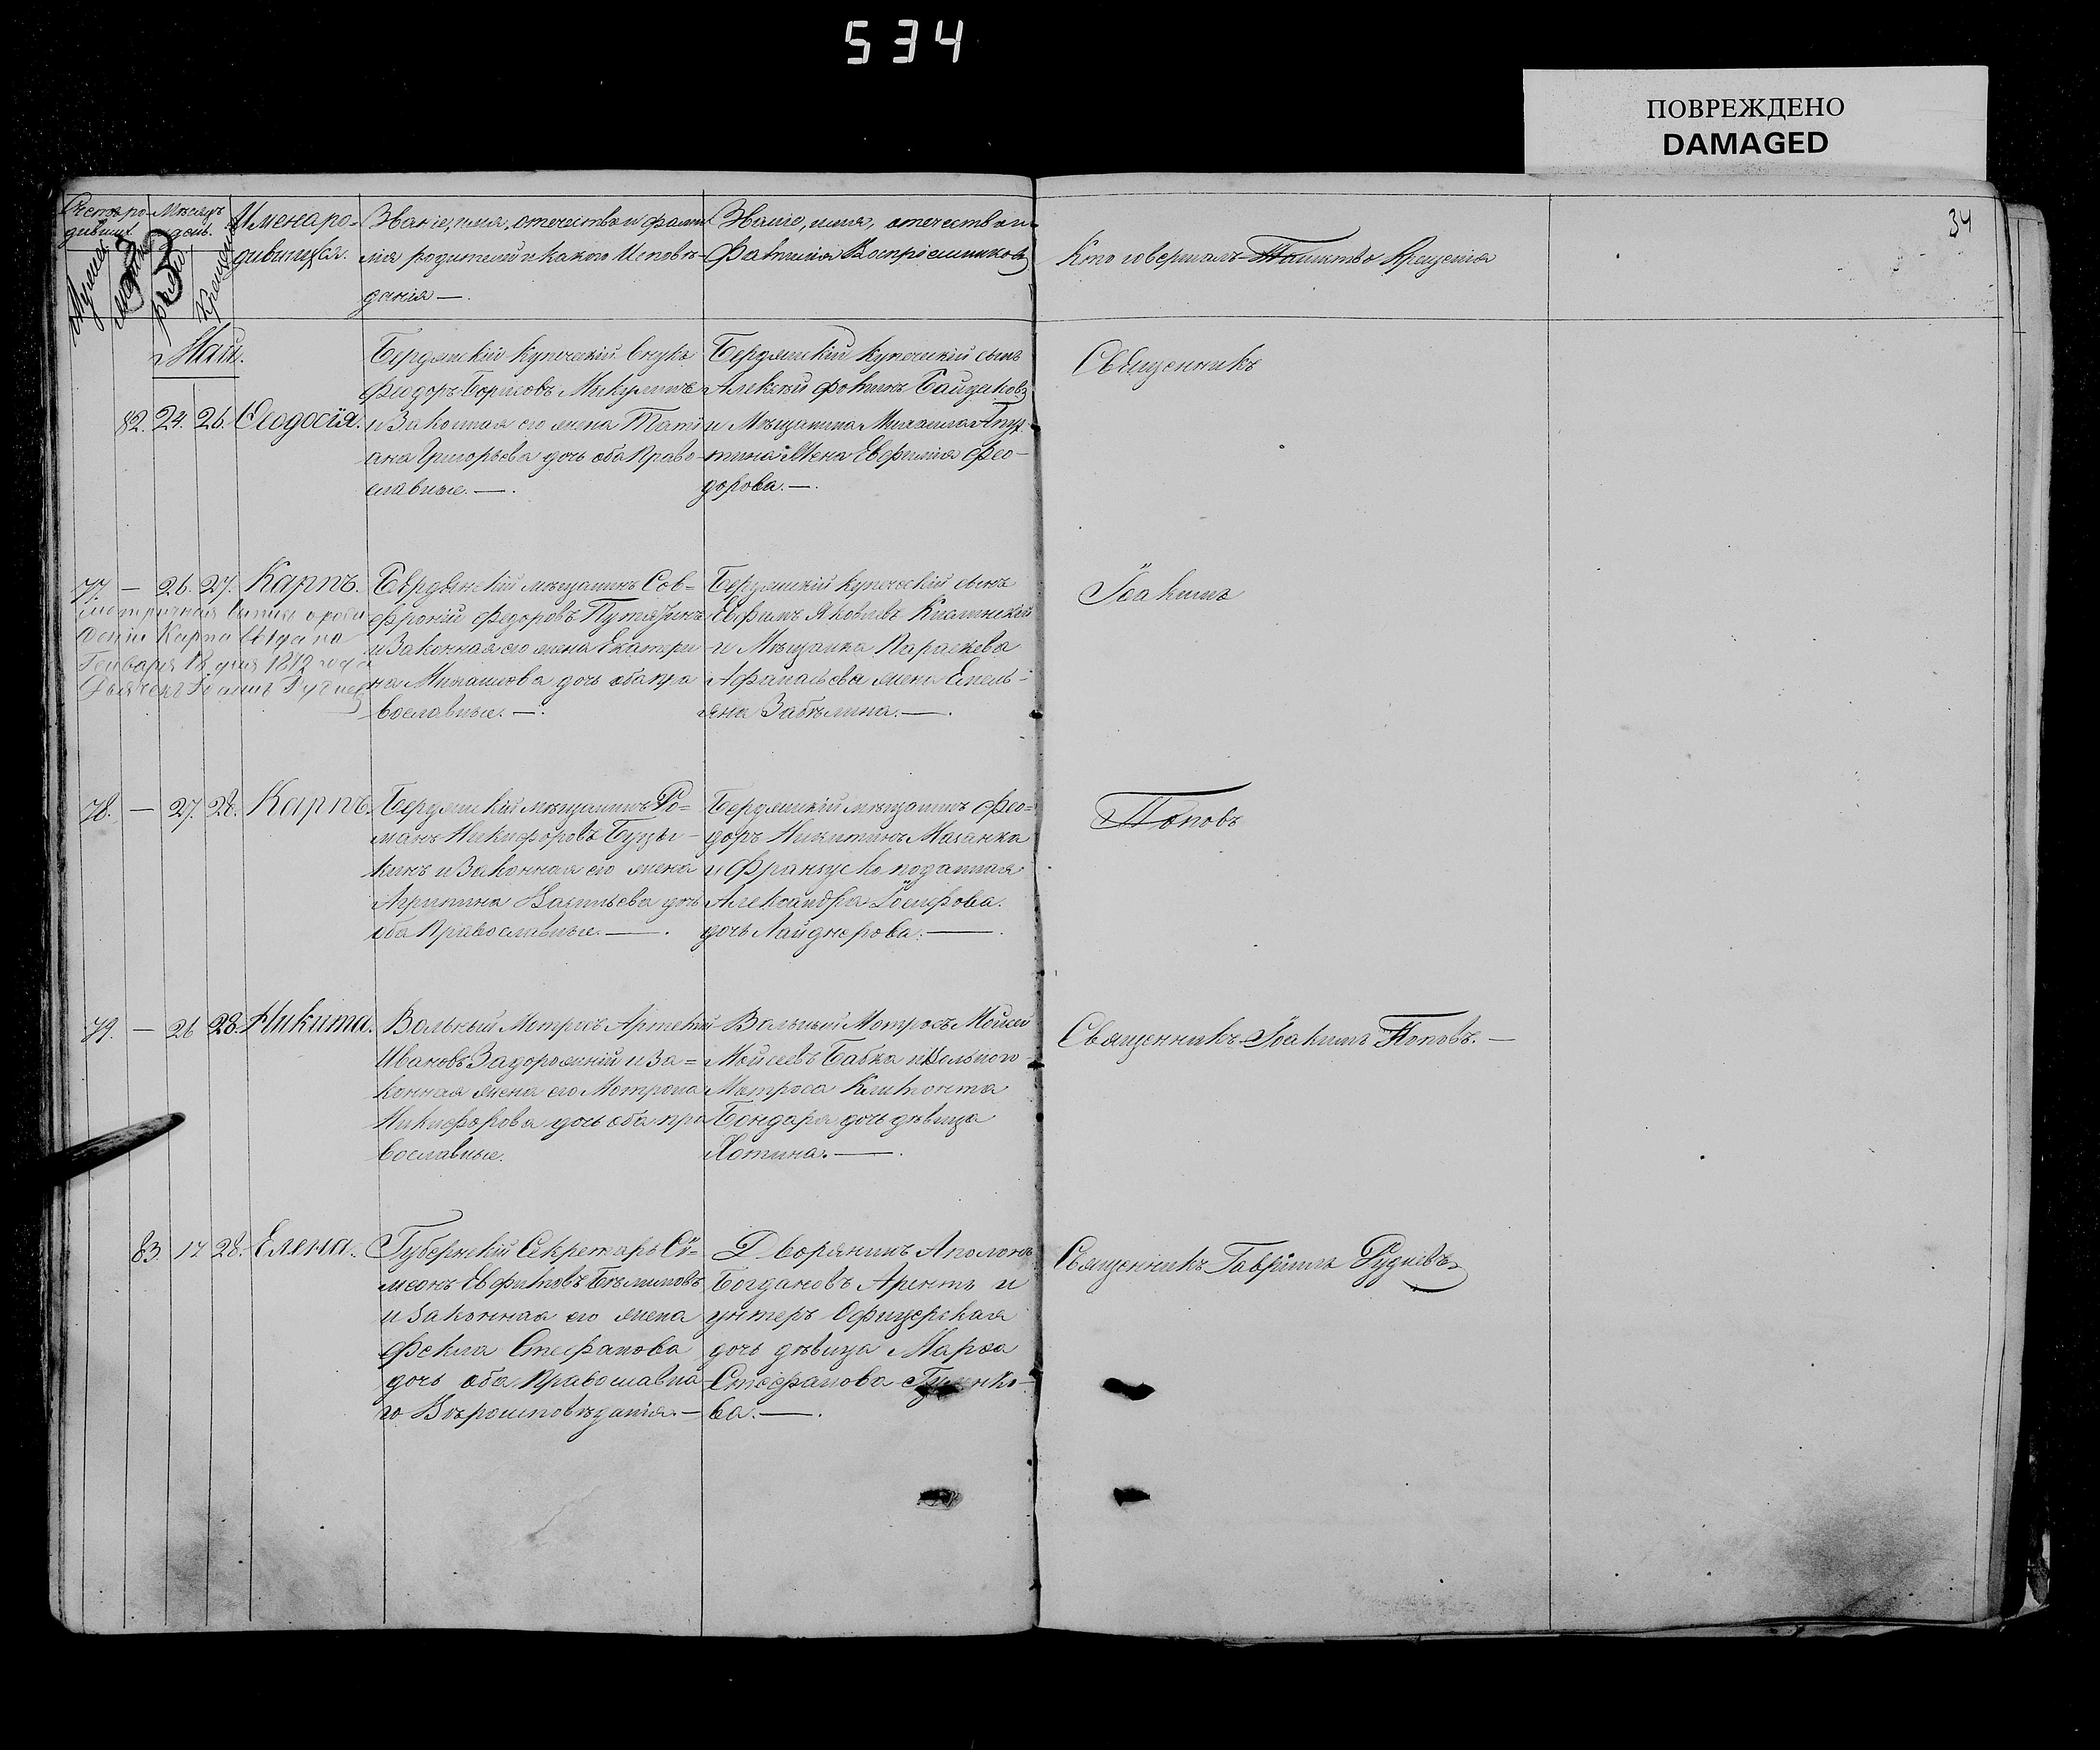 534
ПОВРЕЖДЕНО
DAMAGED
34
Счетъ ро-
дивших.
Мѣсяцъ
и день.
Имена ро-
дившихся.
Званіе, имя, отечество и фами
лія родителей и какого Исповѣ-
данія —.
Званіе, имя, отечество и
Фамилія Воспріемниковъ
Кто совершалъ Таинство Крещенія
Май.
82. 24. 26. Ѳеодосія.
Бердянскій купеческій внукъ
Феодоръ Борисовъ Микулинъ
и Законная его жена Тати
ана Григорьева дочь оба Право-
славные. —.
Бердянскій купеческій сынъ
Алексѣй Фотинъ
и Мѣщанина Михаила
тина Жена Евфимія Фео-
дорова. —.
Священникъ
77. — 26. 27. Карпъ.
Метричная выпись о рож
деніи Карпа выдана
Генваря 12 дня 1872 года
Бердянскій мѣщанинъ Соф-
фроній Федоровъ Путягинъ
и Законная его жена Екатери
на дочь оба пра
вославные. —.
Бердянскій купеческій сынъ
Евфимъ Яковлевъ
и Мѣщанка Параскева
Афанасьева жена Емель-
яна Забѣлина. —.
Іоакимъ
78. — 27. 28. Карпъ.
Бердянскій мѣщанинъ Ро-
манъ Никифоровъ
кинъ и Законная его жена
Агрипина Васильева дочь
оба Православные. —.
Бердянскій мѣщанинъ Фео-
доръ Никитинъ Мазанка
и Французско подданная
Александра Іосифова
дочь Лайднерова. —.
Поповъ
79. — 26 28. Никита.
Вольный Матросъ Артемій
Ивановъ Задорожній и За-
конная жена его Мотрона
Никифорова дочь оба пра
вославные.
Вольный Матросъ Моисей
Моисеевъ Бабка и Вольного
Матроса
Бондаря дочь дѣвица
Хотина. —.
Священникъ Іоакимъ Поповъ. —
83. 17 28. Елена.
Губернскій Секретарь Сѵ-
меонъ
и Законная его жена
Фекла Стефанова
дочь оба Православна
го Вѣроисповѣданія. —
Дворянинъ Аполонъ
Богдановъ Арентъ и
унтеръ Офицерская
дочь дѣвица Марѳа
Стефанова
ва. —.
Священникъ Гавріилъ Рудневъ